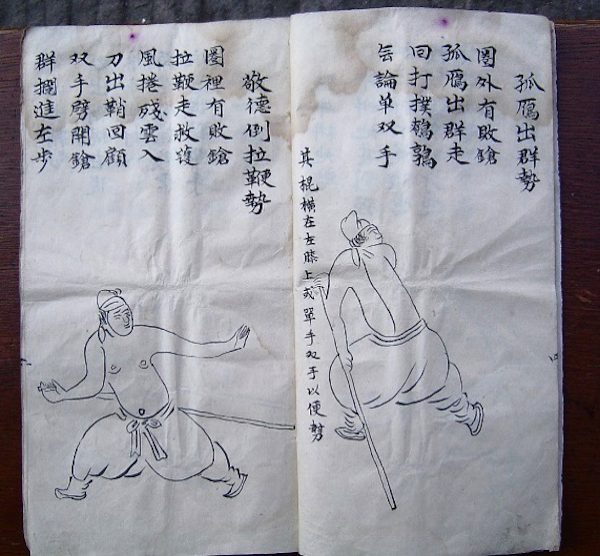 孤鴈出群勢
圈外有敗鎗
孤鴈出群走
回打撲鵪鶉
云論单双手
其棍横在左膝上或單手双手以便勢
敬德倒拉鞭勢
圈裡有敗鎗
拉鞭走救護
風捲殘雲入
刀出鞘回顧
双手劈開鎗
群攔進左步